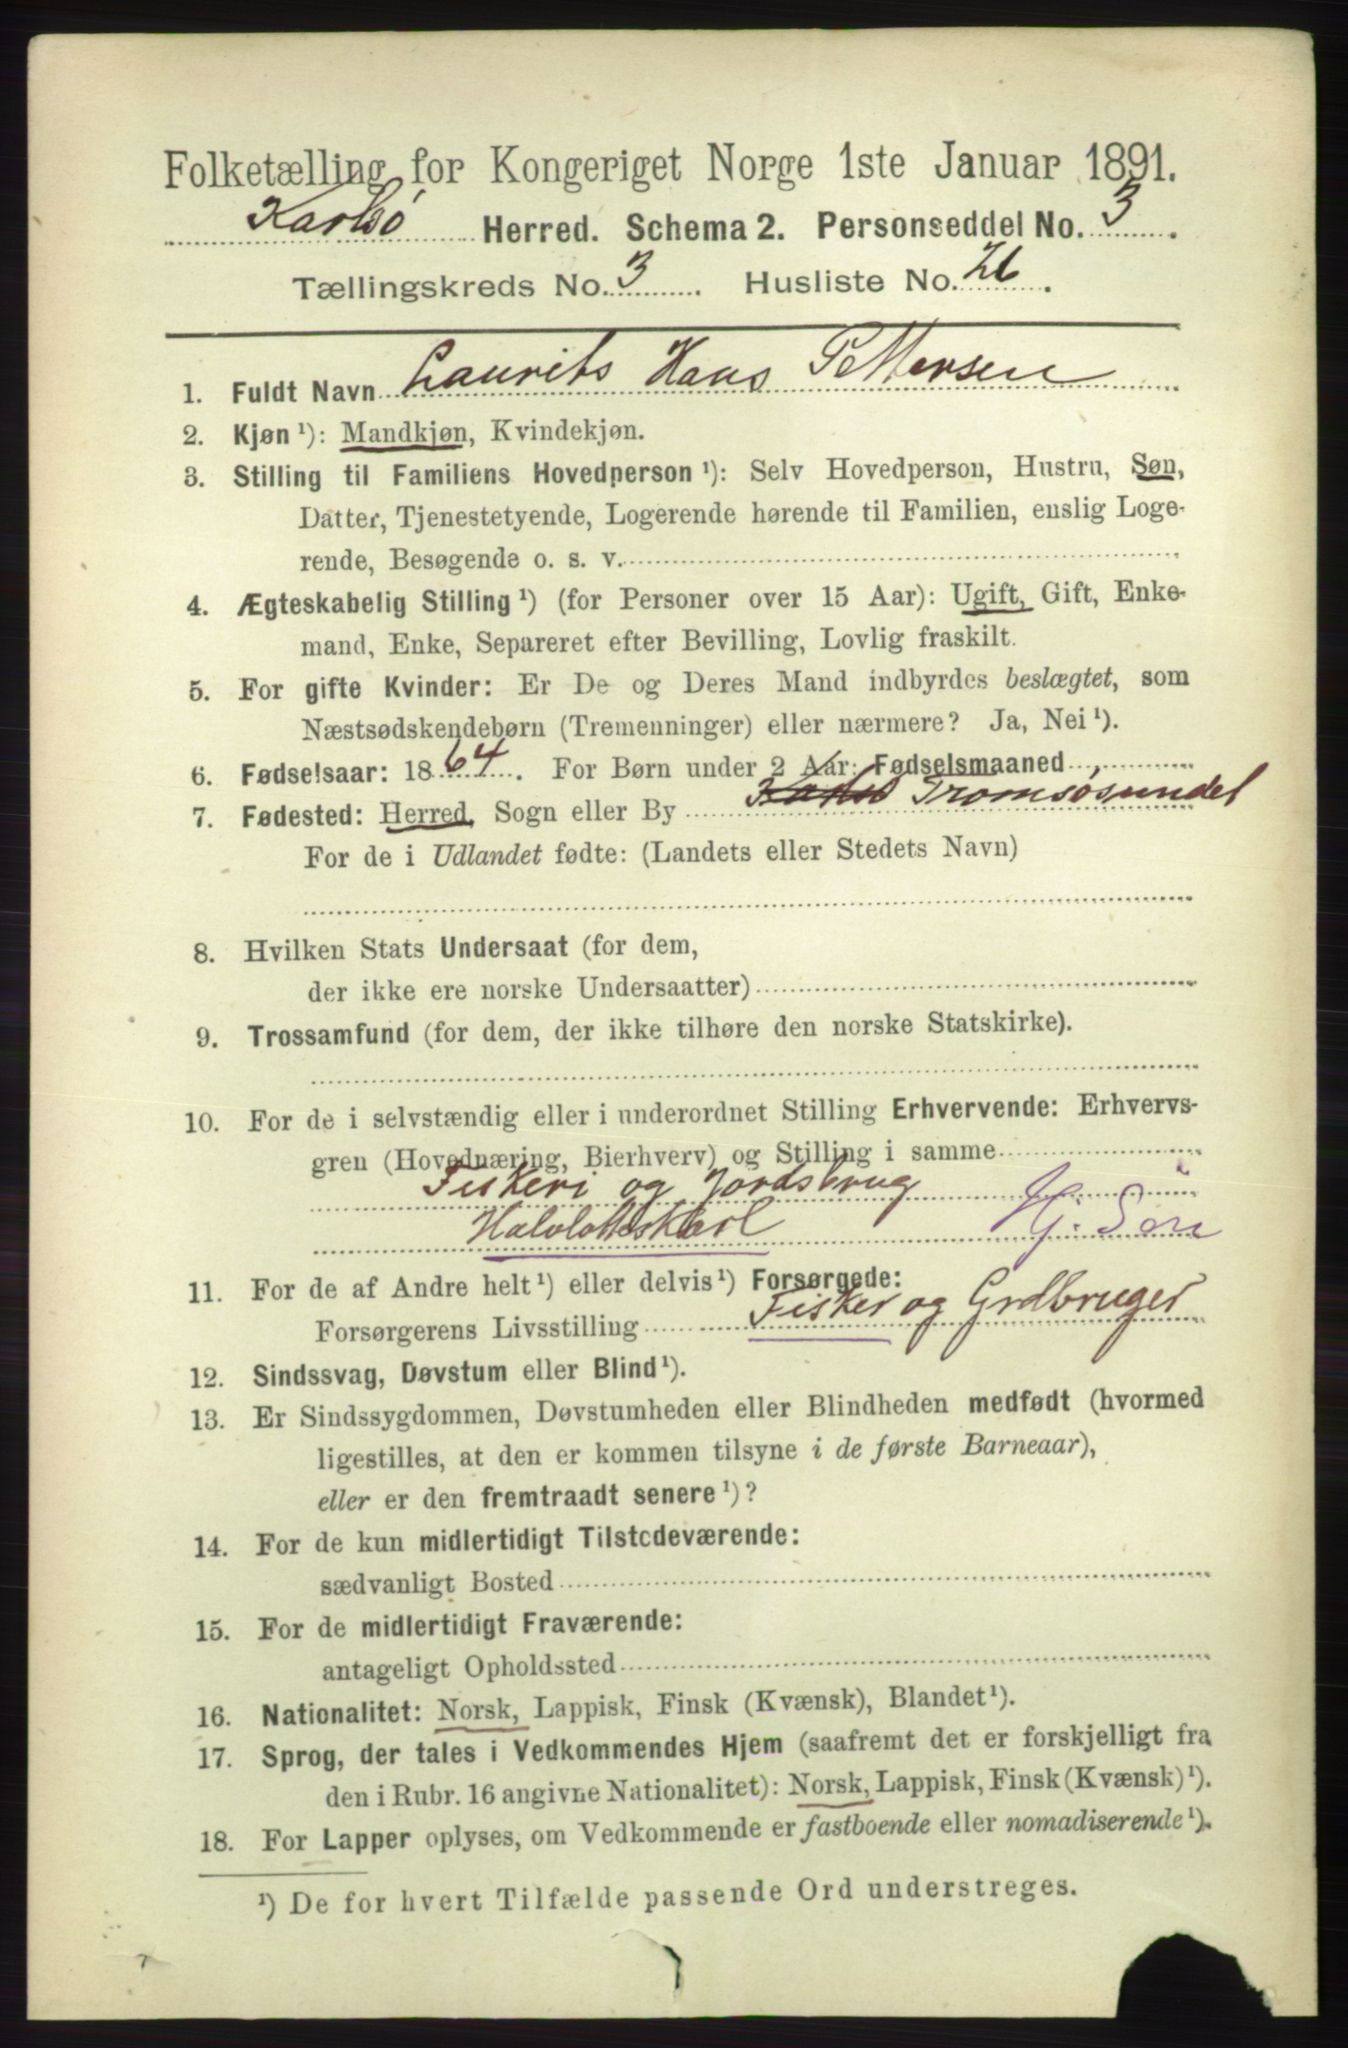 Folketælling for Kongeriget Norge 1ste Januar 1891.
Karlsø Herred. Schema 2. Personseddel No. 3.
Tællingskreds No. 3. Husliste No. 26.
1. Fuldt Navn Laurits Hans Pettersen
2. Kjøn ¹): Mandkjøn, Kvindekjøn.
3. Stilling til Familiens Hovedperson ¹): Selv Hovedperson, Hustru, Søn,
Datter, Tjenestetyende, Logerende hørende til Familien, enslig Loge-
rende, Besøgende o. s. v.
4. Ægteskabelig Stilling ¹) (for Personer over 15 Aar): Ugift, Gift, Enke-
mand, Enke, Separeret efter Bevilling, Lovlig fraskilt.
5. For gifte Kvinder: Er De og Deres Mand indbyrdes beslægtet, som
Næstsødskendebørn (Tremenninger) eller nærmere? Ja, Nei ¹).
6. Fødselsaar: 1864. For Børn under 2 Aar: Fødselsmaaned
7. Fødested: Herred, Sogn eller By Karlsø Tromsøsundet
For de i Udlandet fødte: (Landets eller Stedets Navn)
8. Hvilken Stats Undersaat (for dem,
der ikke ere norske Undersaatter)
9. Trossamfund (for dem, der ikke tilhøre den norske Statskirke).
10. For de i selvstændig eller i underordnet Stilling Erhvervende: Erhvervs-
gren (Hovednæring, Bierhverv) og Stilling i samme
Fiskeri og Jordsbrug
Halvlotteskarl Hj. Søn
11. For de af Andre helt ¹) eller delvis ¹) Forsørgede:
Forsørgerens Livsstilling Fisker og Grdbruger
12. Sindssvag, Døvstum eller Blind ¹).
13. Er Sindssygdommen, Døvstumheden eller Blindheden medfødt (hvormed
ligestilles, at den er kommen tilsyne i de første Barneaar),
eller er den fremtraadt senere ¹)?
14. For de kun midlertidigt Tilstedeværende:
sædvanligt Bosted
15. For de midlertidigt Fraværende:
antageligt Opholdssted
16. Nationalitet: Norsk, Lappisk, Finsk (Kvænsk), Blandet ¹).
17. Sprog, der tales i Vedkommendes Hjem (saafremt det er forskjelligt fra
den i Rubr. 16 angivne Nationalitet): Norsk, Lappisk, Finsk (Kvænsk) ¹).
18. For Lapper oplyses, om Vedkommende er fastboende eller nomadiserende ¹).
¹) De for hvert Tilfælde passende Ord understreges.